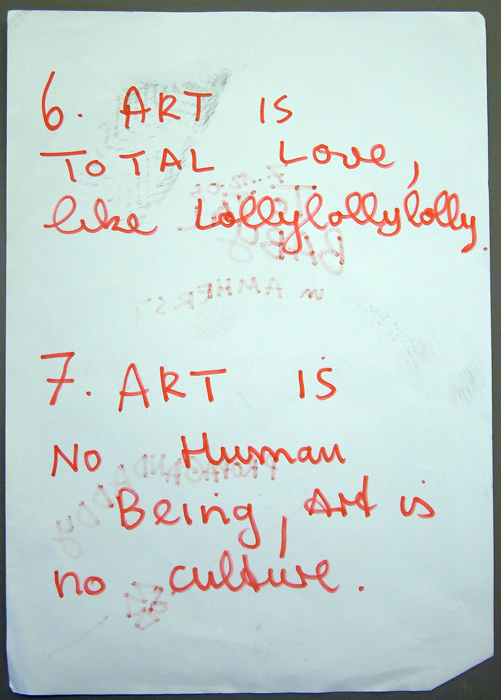 6. ART IS
TOTAL Love,
like Lollylollylolly.
7. ART IS
No Human
Being, Art is
no culture.